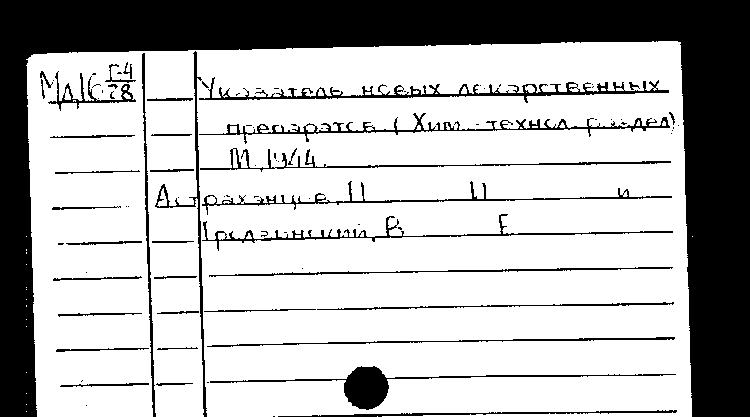 Мд16 Г-4/28
Указатель новых лекарственных
препаратов (Хим.-технол. раздел)
М, 1944.
Астраханцев, П П и
Гродзинский, В Е